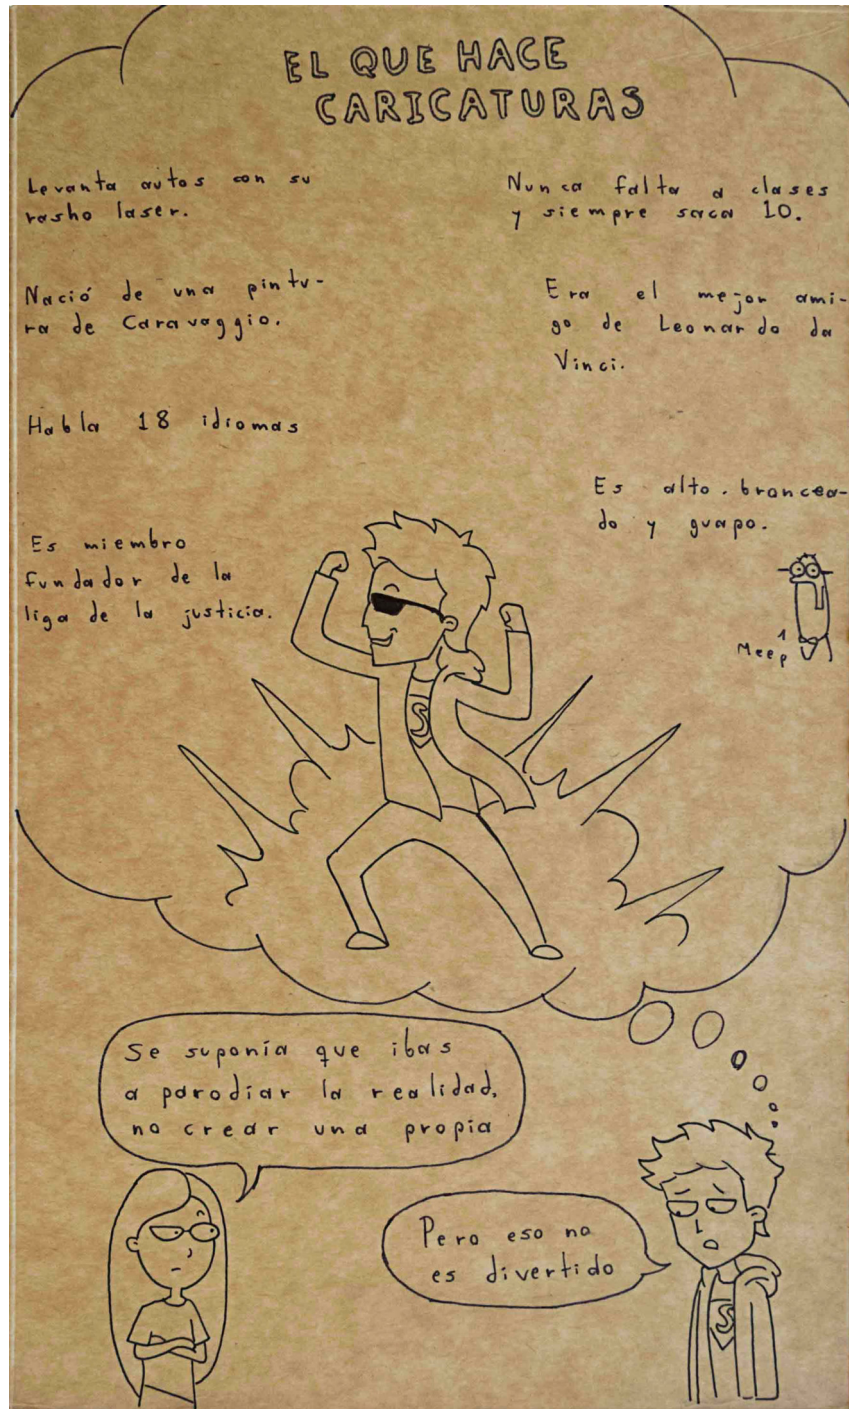 EL QUE HACE
CARICATURAS
Levanta autos con su
rasho laser.
Nació de una pintu-
ra de Caravaggio.
Habla 18 idiomas
Es miembro
fundador de la
liga de la justicia.
Nunca falta a clases
y siempre saca 10.
Era el mejor ami-
go de Leonardo da
Vinci.
Es alto. broncea-
do y guapo.
Meep
S
Se suponía que ibas
a parodiar la realidad,
no crear una propia
Pero eso no
es divertido
S